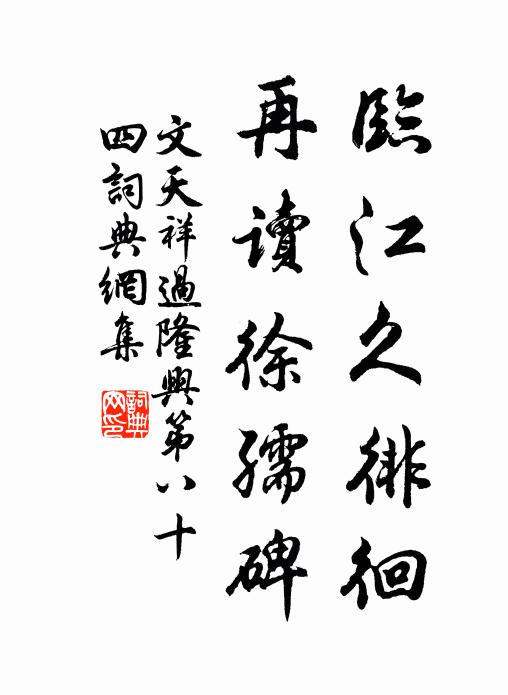 臨江久徘徊
再讀徐孺碑
文天祥過隆興第八十
四詞典網集
詞典
网印